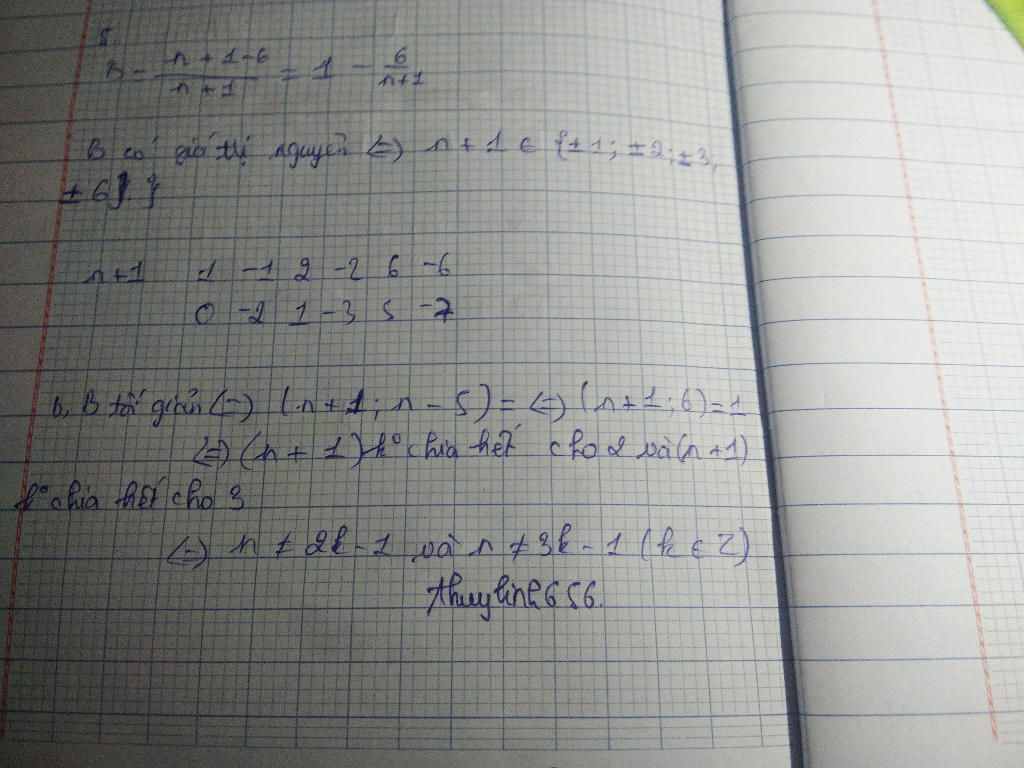 5.
B = n + 1 - 6 / n + 1 = 1 - 6 / n+1
B có giá trị nguyên <=> n + 1 ∈ {±1; ±2; ±3,
± 6} }
n+1 1 -1 2 -2 6 -6
0 -2 1 -3 5 -7
b, B tối giản <=> (n + 1; n - 5) = <=> (n+1; 6) = 1
<=> (n + 1) k° chia hết cho 2 và (n+1)
k° chia hết cho 3
<=> n ≠ 2k - 1 và n ≠ 3k - 1 (k ∈ Z)
thuylinh656.